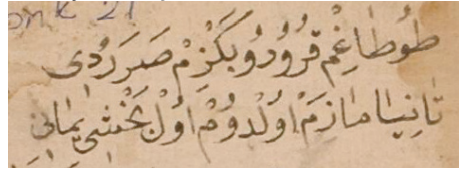 onK 21
طُوطَاغِمْ قُرُودُو بَكْزِمْ صَرَرْدِى
تَانِيَامَازَمْ اُولْدُومْ اُولْ يَخْشِى يَمَانِى